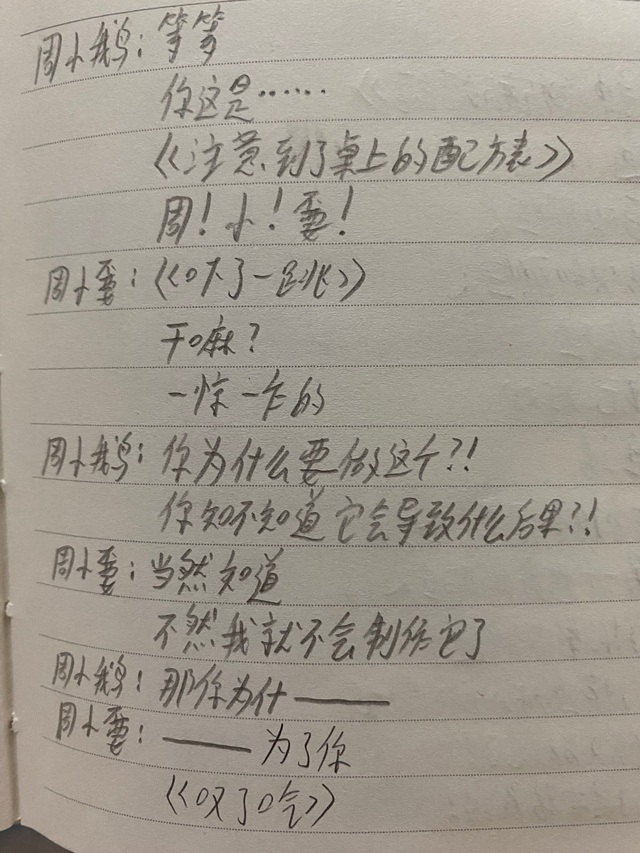 周小鹅：等等
你这是……
《注意到了桌上的配方表》
周！小！嫑！
周小嫑：《吓了一跳》
干嘛？
一惊一乍的
周小鹅：你为什么要做这个？！
你知不知道它会导致什么后果？！
周小嫑：当然知道
不然我就不会制作它了
周小鹅：那你为什——
周小嫑：——为了你
《叹了口气》